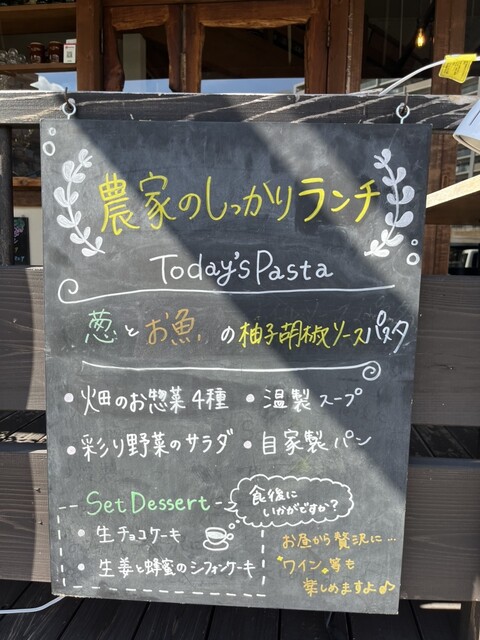 農家のしっかりランチ
Today's Pasta
葱とお魚の柚子胡椒ソースパスタ
• 畑のお惣菜4種 • 温製スープ
• 彩り野菜のサラダ • 自家製パン
Set Dessert
食後に
いかがですか?
• 生チョコケーキ
• 生姜と蜂蜜のシフォンケーキ
お昼から贅沢に...
"ワイン"等も
楽しめますよ♪